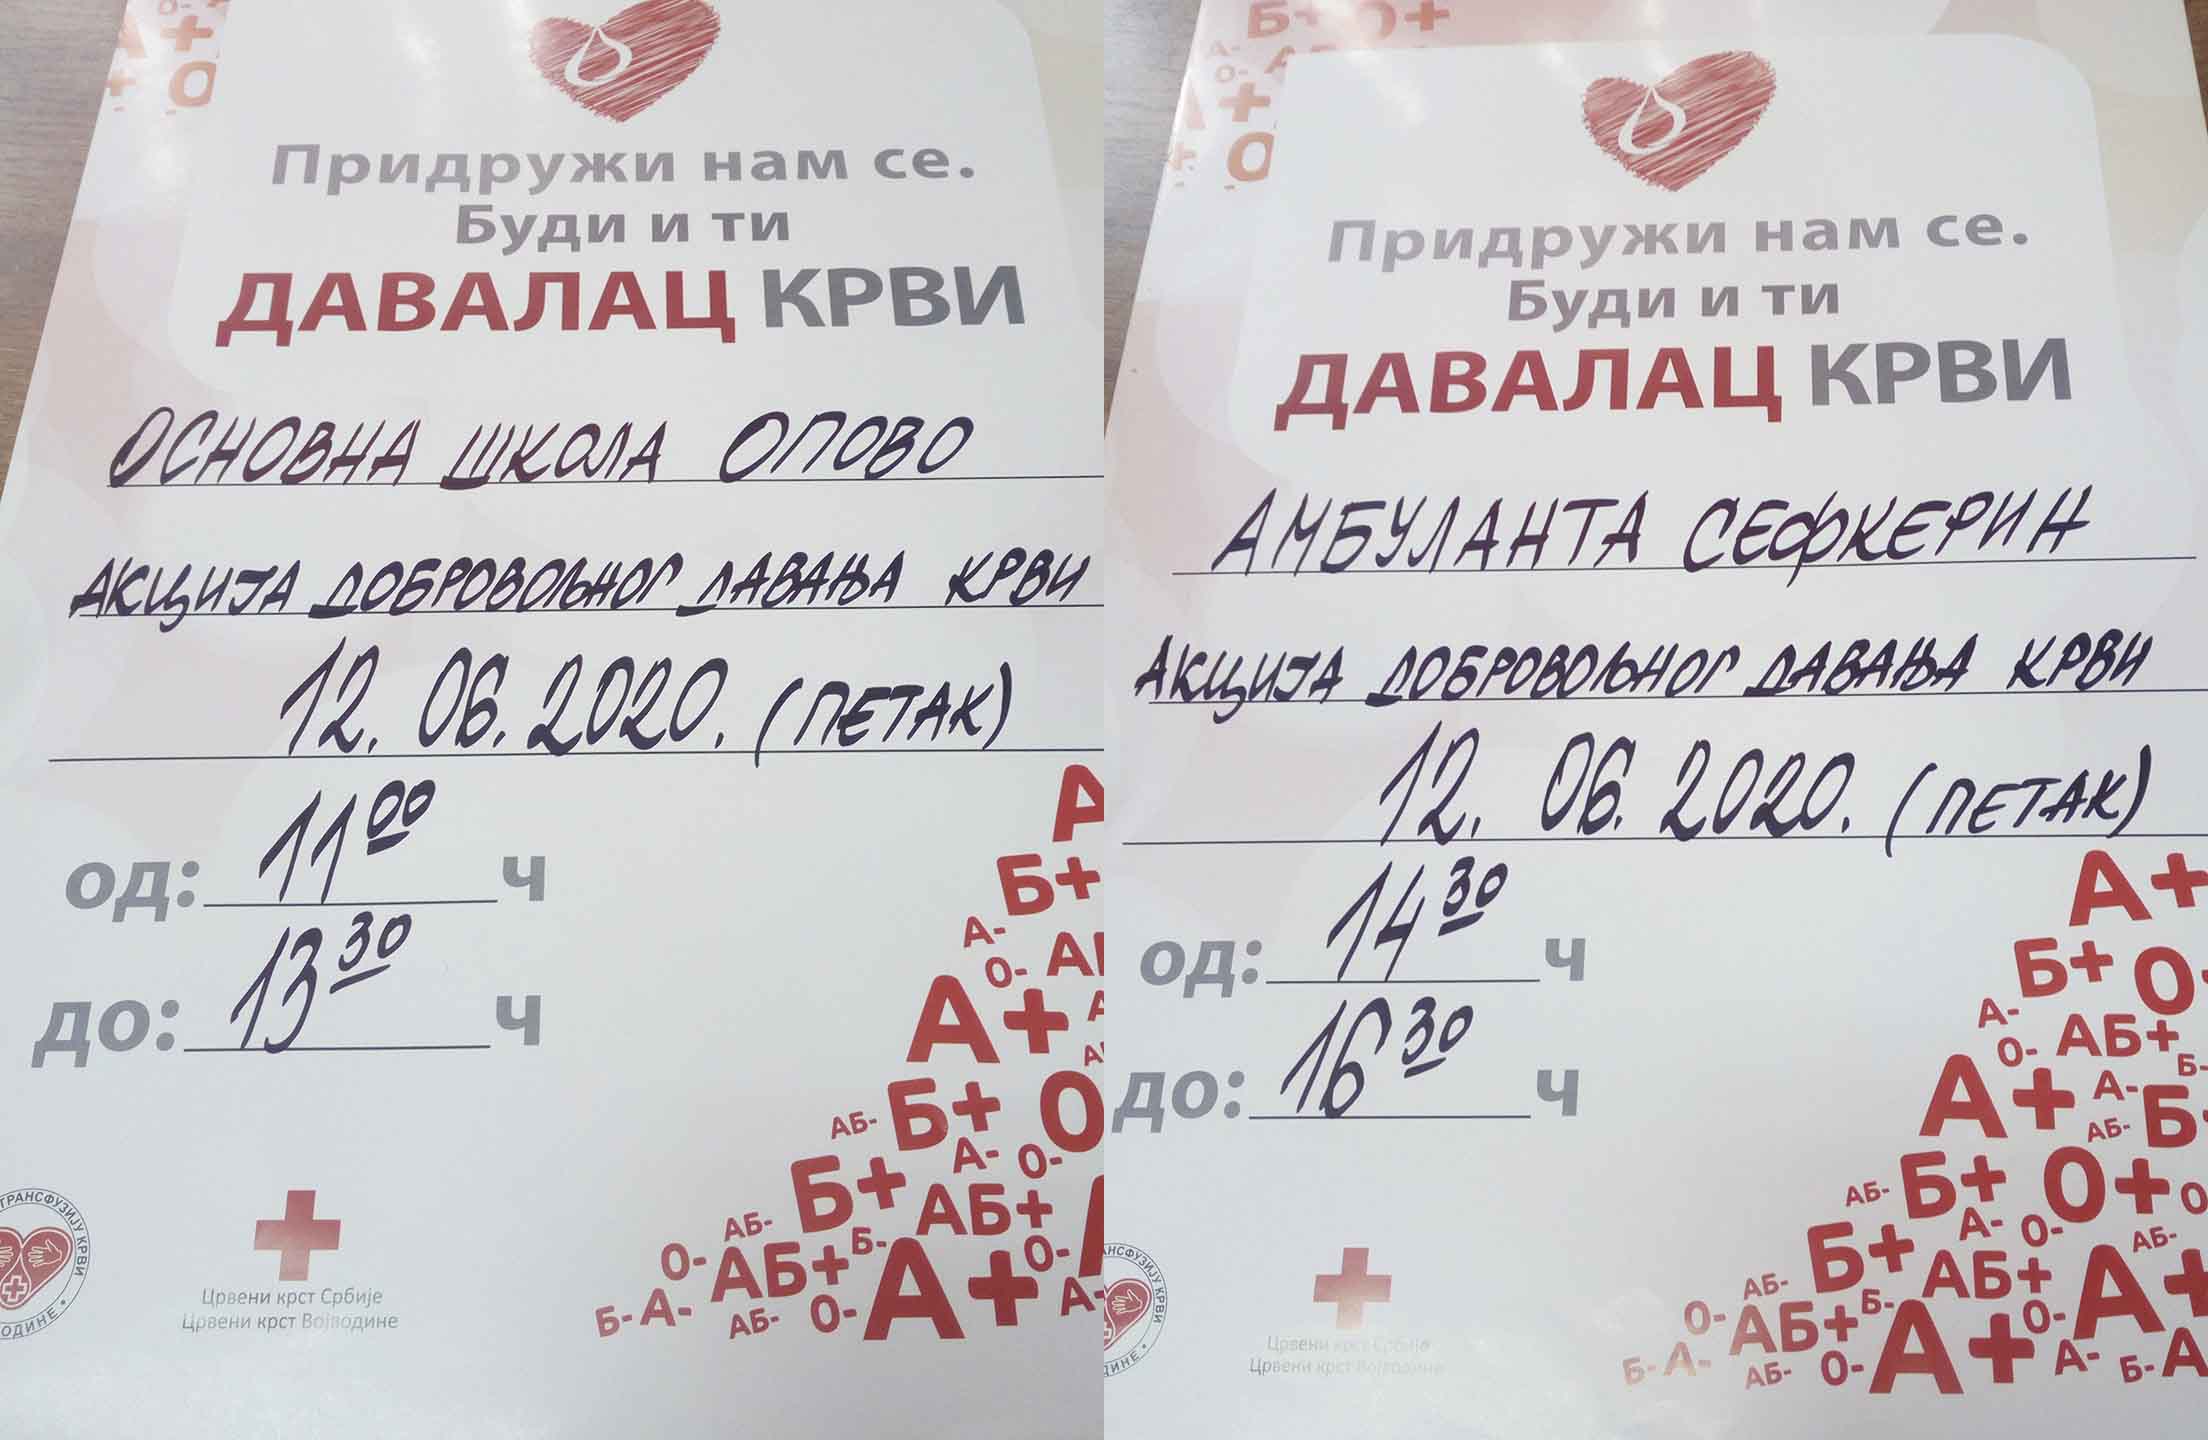 Придружи нам се.
Буди и ти
ДАВАЛАЦ КРВИ
ОСНОВНА ШКОЛА ОПОВО
АКЦИЈА ДОБРОВОЉНОГ ДАВАЊА КРВИ
12. 06. 2020. (ПЕТАК)
од: 11 00 ч
до: 13 30 ч
ТРАНСФУЗИЈУ КРВИ
Црвени крст Србије
Црвени крст Војводине
А
Б+
А-
О- АБ
А+
АБ- Б+ О
А- О-
Б+
АБ- АБ+
О- АБ+ Б- А+ О-
Б- А- АБ- О- А-
Придружи нам се.
Буди и ти
ДАВАЛАЦ КРВИ
АМБУЛАНТА СЕФКЕРИН
АКЦИЈА ДОБРОВОЉНОГ ДАВАЊА КРВИ
12. 06. 2020. (ПЕТАК)
од: 14 30 ч
до: 16 30 ч
КРВИ
Црвени крст Србије
Црвени крст Војводине
А+
Б+ О-
А-
О- АБ+
А+ А- Б-
АБ- Б-
АБ- Б+ О+ О
А- О-
Б+ АБ-
АБ- АБ+ А+
О- АБ+ Б- А+ О-
Б- А- АБ- О- А- Б- А